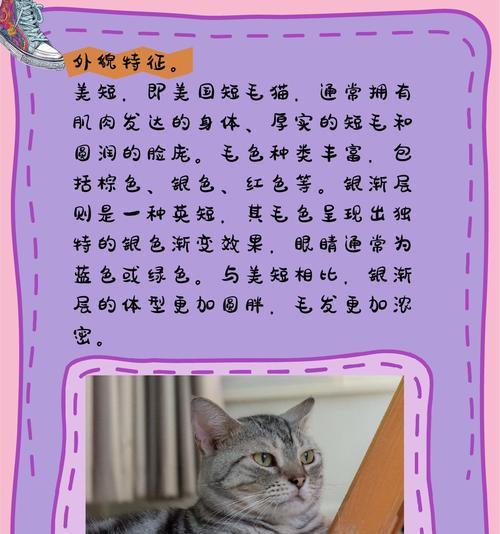 外貌特征。
美短，即美国短毛猫，通常拥有
肌肉发达的身体、厚实的短毛和
圆润的脸庞。毛色种类丰富，包
括棕色、银色、红色等。银渐层
则是一种英短，其毛色呈现出独
特的银色渐变效果，眼睛通常为
蓝色或绿色。与美短相比，银渐
层的体型更加圆胖，毛发更加浓
密。